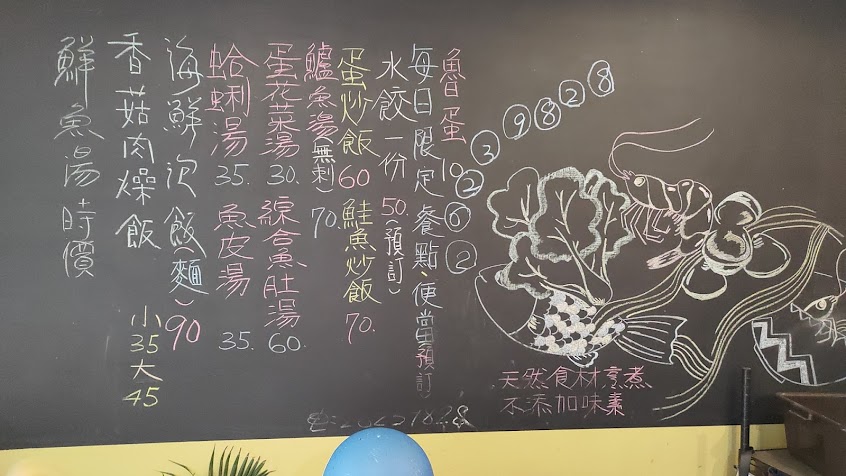 魯蛋 10
每日限定餐點、便當(預訂)
水餃一份 50.(預訂)
蛋炒飯 60 鮭魚炒飯 70.
鱸魚湯(無刺) 70.
蛋花菜湯 30. 綜合魚肚湯 60.
蛤蜊湯 35. 魚皮湯 35.
海鮮(飯麵) 90
香菇肉燥飯 小35大45
鮮魚湯時價
26239828
天然食材烹煮
不添加味素